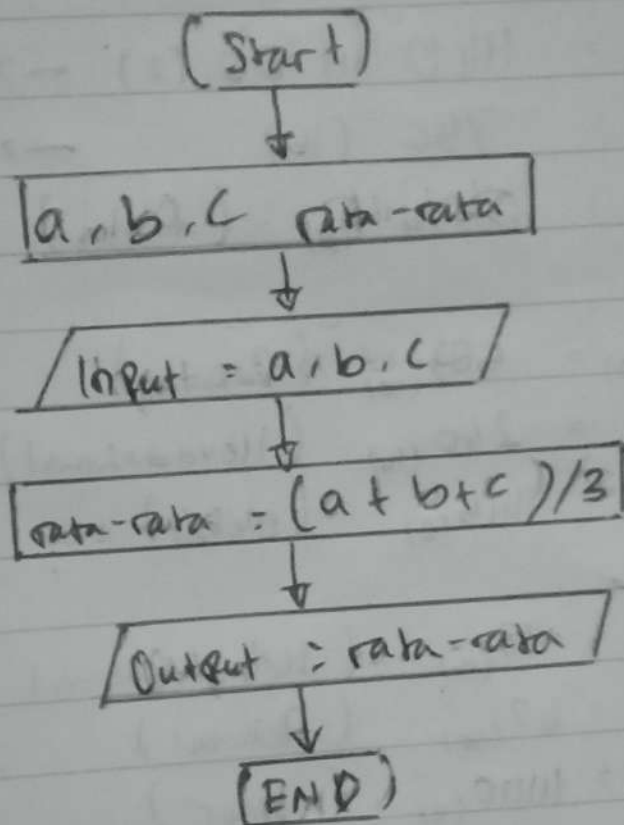 (Start)
a, b, c rata-rata
Input = a, b, c
rata-rata = (a + b + c)/3
Output = rata-rata
(END)